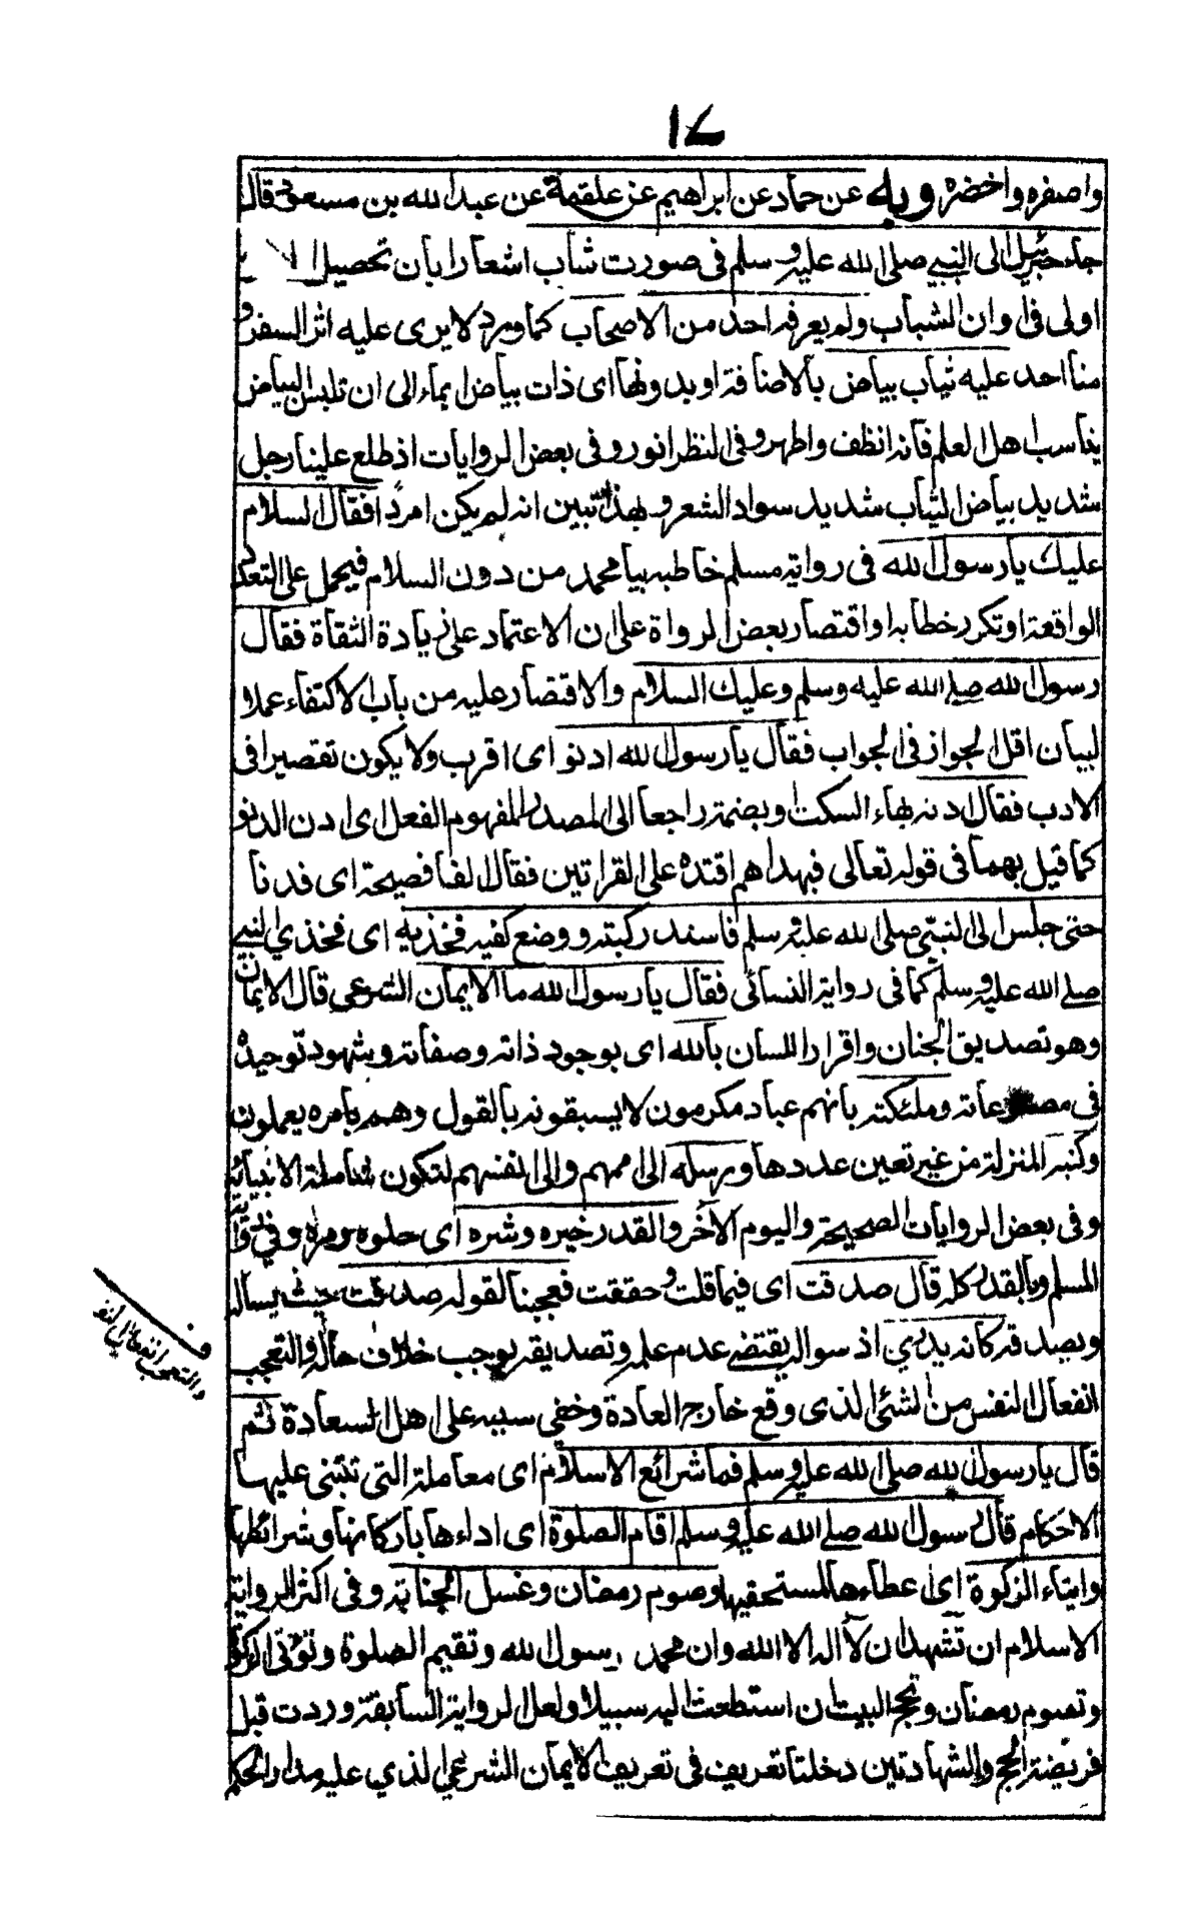 ١٧
واصفره واخضره وبه عن حماد عن ابراهيم عن علقمة عن عبد الله بن مسعود قال
جاء جبرئيل الى النبي صلى الله عليه وسلم فى صورت شاب اشعارا بان تحصيل
اولى فى اوان الشباب ولم يعرفه احد من الاصحاب كما ورد لا يرى عليه اثر السفر و
منا احد عليه ثياب بياض بالاضافة او بدونها اى ذات بياض ايماء الى ان تلبس البياض
يناسب اهل العلم فانه انظف واطهر وفى النظر انور وفى بعض الروايات اذ طلع علينا رجل
شديد بياض الثياب شديد سواد الشعر وبهذا تبين انه لم يكن امردا فقال السلام
عليك يا رسول الله فى رواية مسلم خاطبه بيا محمد من دون السلام فيحمل على التعدد
الواقعة او تكرر خطابه او اقتصار بعض الرواة على ان الاعتماد على زيادة الثقاة فقال
رسول الله صلى الله عليه وسلم وعليك السلام والاقتصار عليه من باب الاكتفاء عملا
لبيان اقل الجواز فى الجواب فقال يا رسول الله ادنو اى اقرب ولا يكون تقصيرا فى
الادب فقال ادنه بهاء السكت او بضمة راجعا الى المصدر المفهوم الفعل اى ادن الدنو
كما قيل بهما فى قوله تعالى فبهداهم اقتده على القراتين فقال الفا فصيحة اى فدنا
حتى جلس الى النبي صلى الله عليه وسلم فاسند ركبته ووضع كفيه فخذيه اى فخذي النبي
صلى الله عليه وسلم كما فى رواية النسائى فقال يا رسول الله ما الايمان الشرعي قال الايمان
وهو تصديق الجنان واقرار اللسان بالله اى بوجود ذاته وصفاته وشهود توحيده
فى مصنوعاته وملئكته بانهم عباد مكرمون لا يسبقونه بالقول وهم بامره يعملون
وكتبه المنزلة من غير تعين عددها ورسله الى اممهم والى انفسهم لتكون شاملة الانبيائه
وفى بعض الروايات الصحيحة واليوم الاخر والقدر خيره وشره اى حلوه ومره وفي رواية
المسلم وبالقدر كله قال صدقت اى فيما قلت وحققت فعجبنا لقوله صدقت حيث يساله
ويصدقه كانه يدري اذ سواله يقتضى عدم علمه وتصديقه يوجب خلاف حاله والتعجب
انفعال النفس من الشئ الذى وقع خارج العادة وخفي سببه على اهل السعادة ثم
قال يا رسول الله صلى الله عليه وسلم فما شرائع الاسلام اى معاملة التى تبتنى عليها
الاحكام قال رسول الله صلى الله عليه وسلم اقام الصلوة اى اداءها باركانها وشرائطها
وايتاء الزكوة اى اعطاءها لمستحقيها وصوم رمضان وغسل الجنابة وفى اكثر الرواية
الاسلام ان تشهد ان لا اله الا الله وان محمد رسول الله وتقيم الصلوة وتوتى الزكوة
وتصوم رمضان وتحج البيت ان استطعت اليه سبيلا ولعل الرواية السابقة وردت قبل
فريضة الحج والشهادتين دخلتا تعريف فى تعريف الايمان الشرعي الذي عليه مدار الحكم
والتعجب انفعال النفس